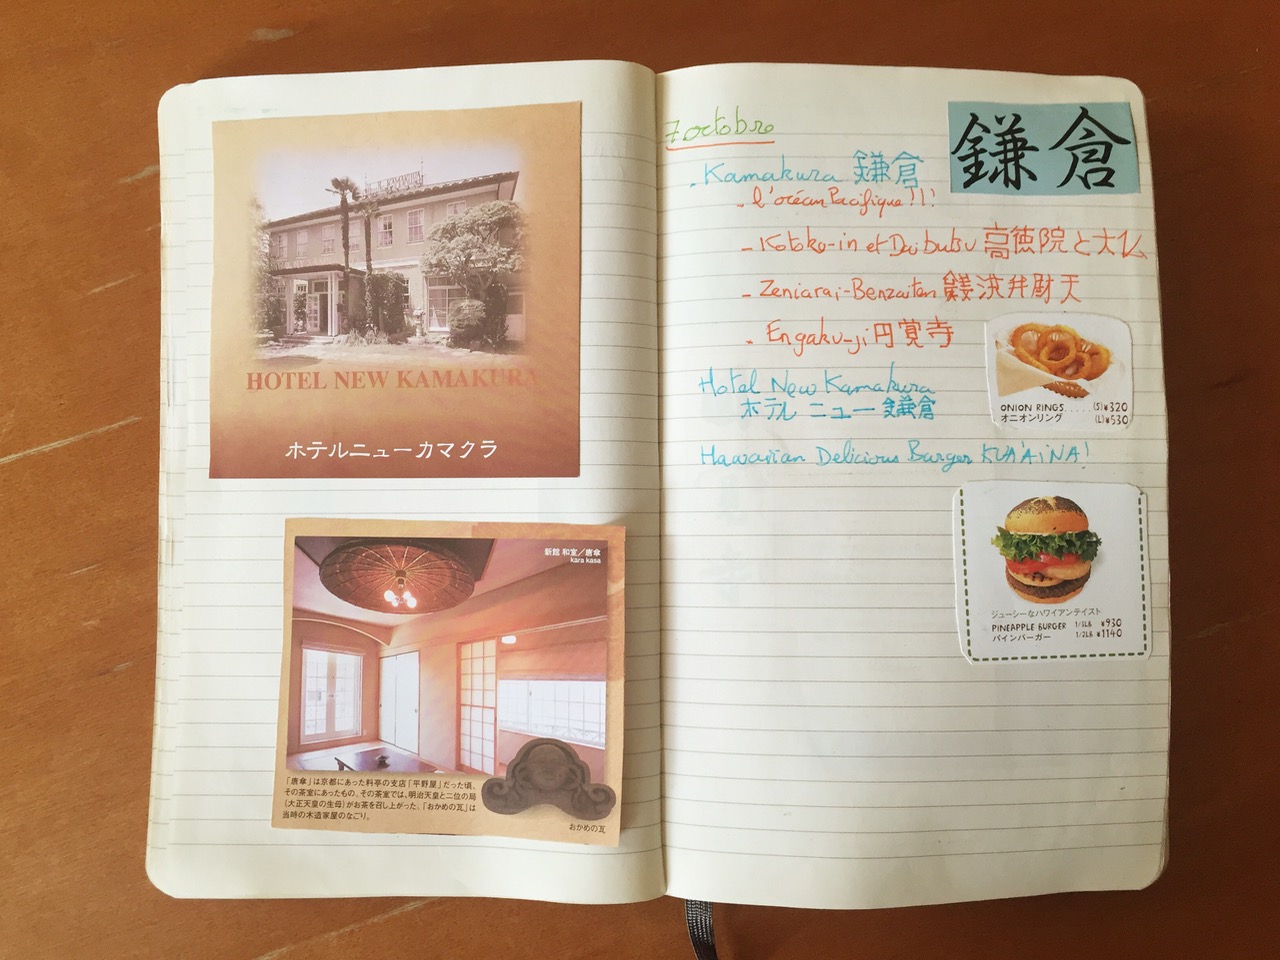 H. N. KAMAKURA
HOTEL NEW KAMAKURA
ホテルニューカマクラ
新館 和室/唐傘
kara kasa
「唐傘」は京都にあった料亭の支店「平野屋」だった頃、
その茶室にあったもの。その茶室では、明治天皇と二位の局
(大正天皇の生母)がお茶を召し上がった。「おかめの瓦」は
当時の木造家屋のなごり。
おかめの瓦
7 octobre
鎌倉
- Kamakura 鎌倉
- l'océan Pacifique!!!
- Kotoko-in et Daibutsu 高徳院と大仏
- Zeniarai-Benzaiten 銭洗弁財天
- Engaku-ji 円覚寺
Hotel New Kamakura
ホテル ニュー 鎌倉
ONION RINGS.....(S)¥320
オニオンリング (L)¥530
Hawaiian Delicious Burger KUA'AINA!
ジューシーなハワイアンテイスト
PINEAPPLE BURGER 1/3LB ¥930
パインバーガー 1/2LB ¥1140